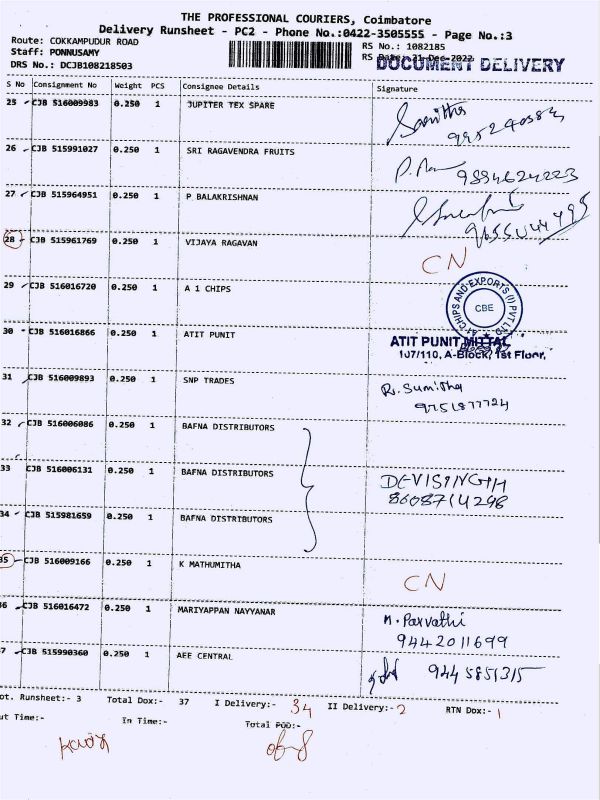 THE PROFESSIONAL COURIERS, Coimbatore
Delivery Runsheet - PC2 - Phone No.:0422-3505555 - Page No.:3
Route: COKKAMPUDUR ROAD
Staff: PONNUSAMY
DRS No.: DCJB108218503
RS No.: 1082185
RS Date: 21-Dec-2022
DOCUMENT DELIVERY
S No Consignment No Weight PCS Consignee Details Signature
25 CJB 516009983 0.250 1 JUPITER TEX SPARE
26 CJB 515991027 0.250 1 SRI RAGAVENDRA FRUITS 9894624223
27 CJB 515964951 0.250 1 P BALAKRISHNAN 9655044495
28 CJB 515961769 0.250 1 VIJAYA RAGAVAN CN
29 CJB 516016720 0.250 1 A 1 CHIPS
A1 CHIPS AND EXPORTS (I) PVT LTD
CBE
30 CJB 516016866 0.250 1 ATIT PUNIT
ATIT PUNIT MITTAL
107/110, A-Block, 1st Floor,
31 CJB 516009893 0.250 1 SNP TRADES R. Sumitha
9751877724
32 CJB 516006086 0.250 1 BAFNA DISTRIBUTORS
33 CJB 516006131 0.250 1 BAFNA DISTRIBUTORS DEVISINGH
8608714298
34 CJB 515981659 0.250 1 BAFNA DISTRIBUTORS
35 CJB 516009166 0.250 1 K MATHUMITHA CN
6 CJB 516016472 0.250 1 MARIYAPPAN NAYYANAR M. Parvathi
9442011699
7 CJB 515990360 0.250 1 AEE CENTRAL 9445851315
ot. Runsheet:- 3 Total Dox:- 37 I Delivery:- 34 II Delivery:- 2 RTN Dox:- 1
ut Time:- In Time:- Total POD:-